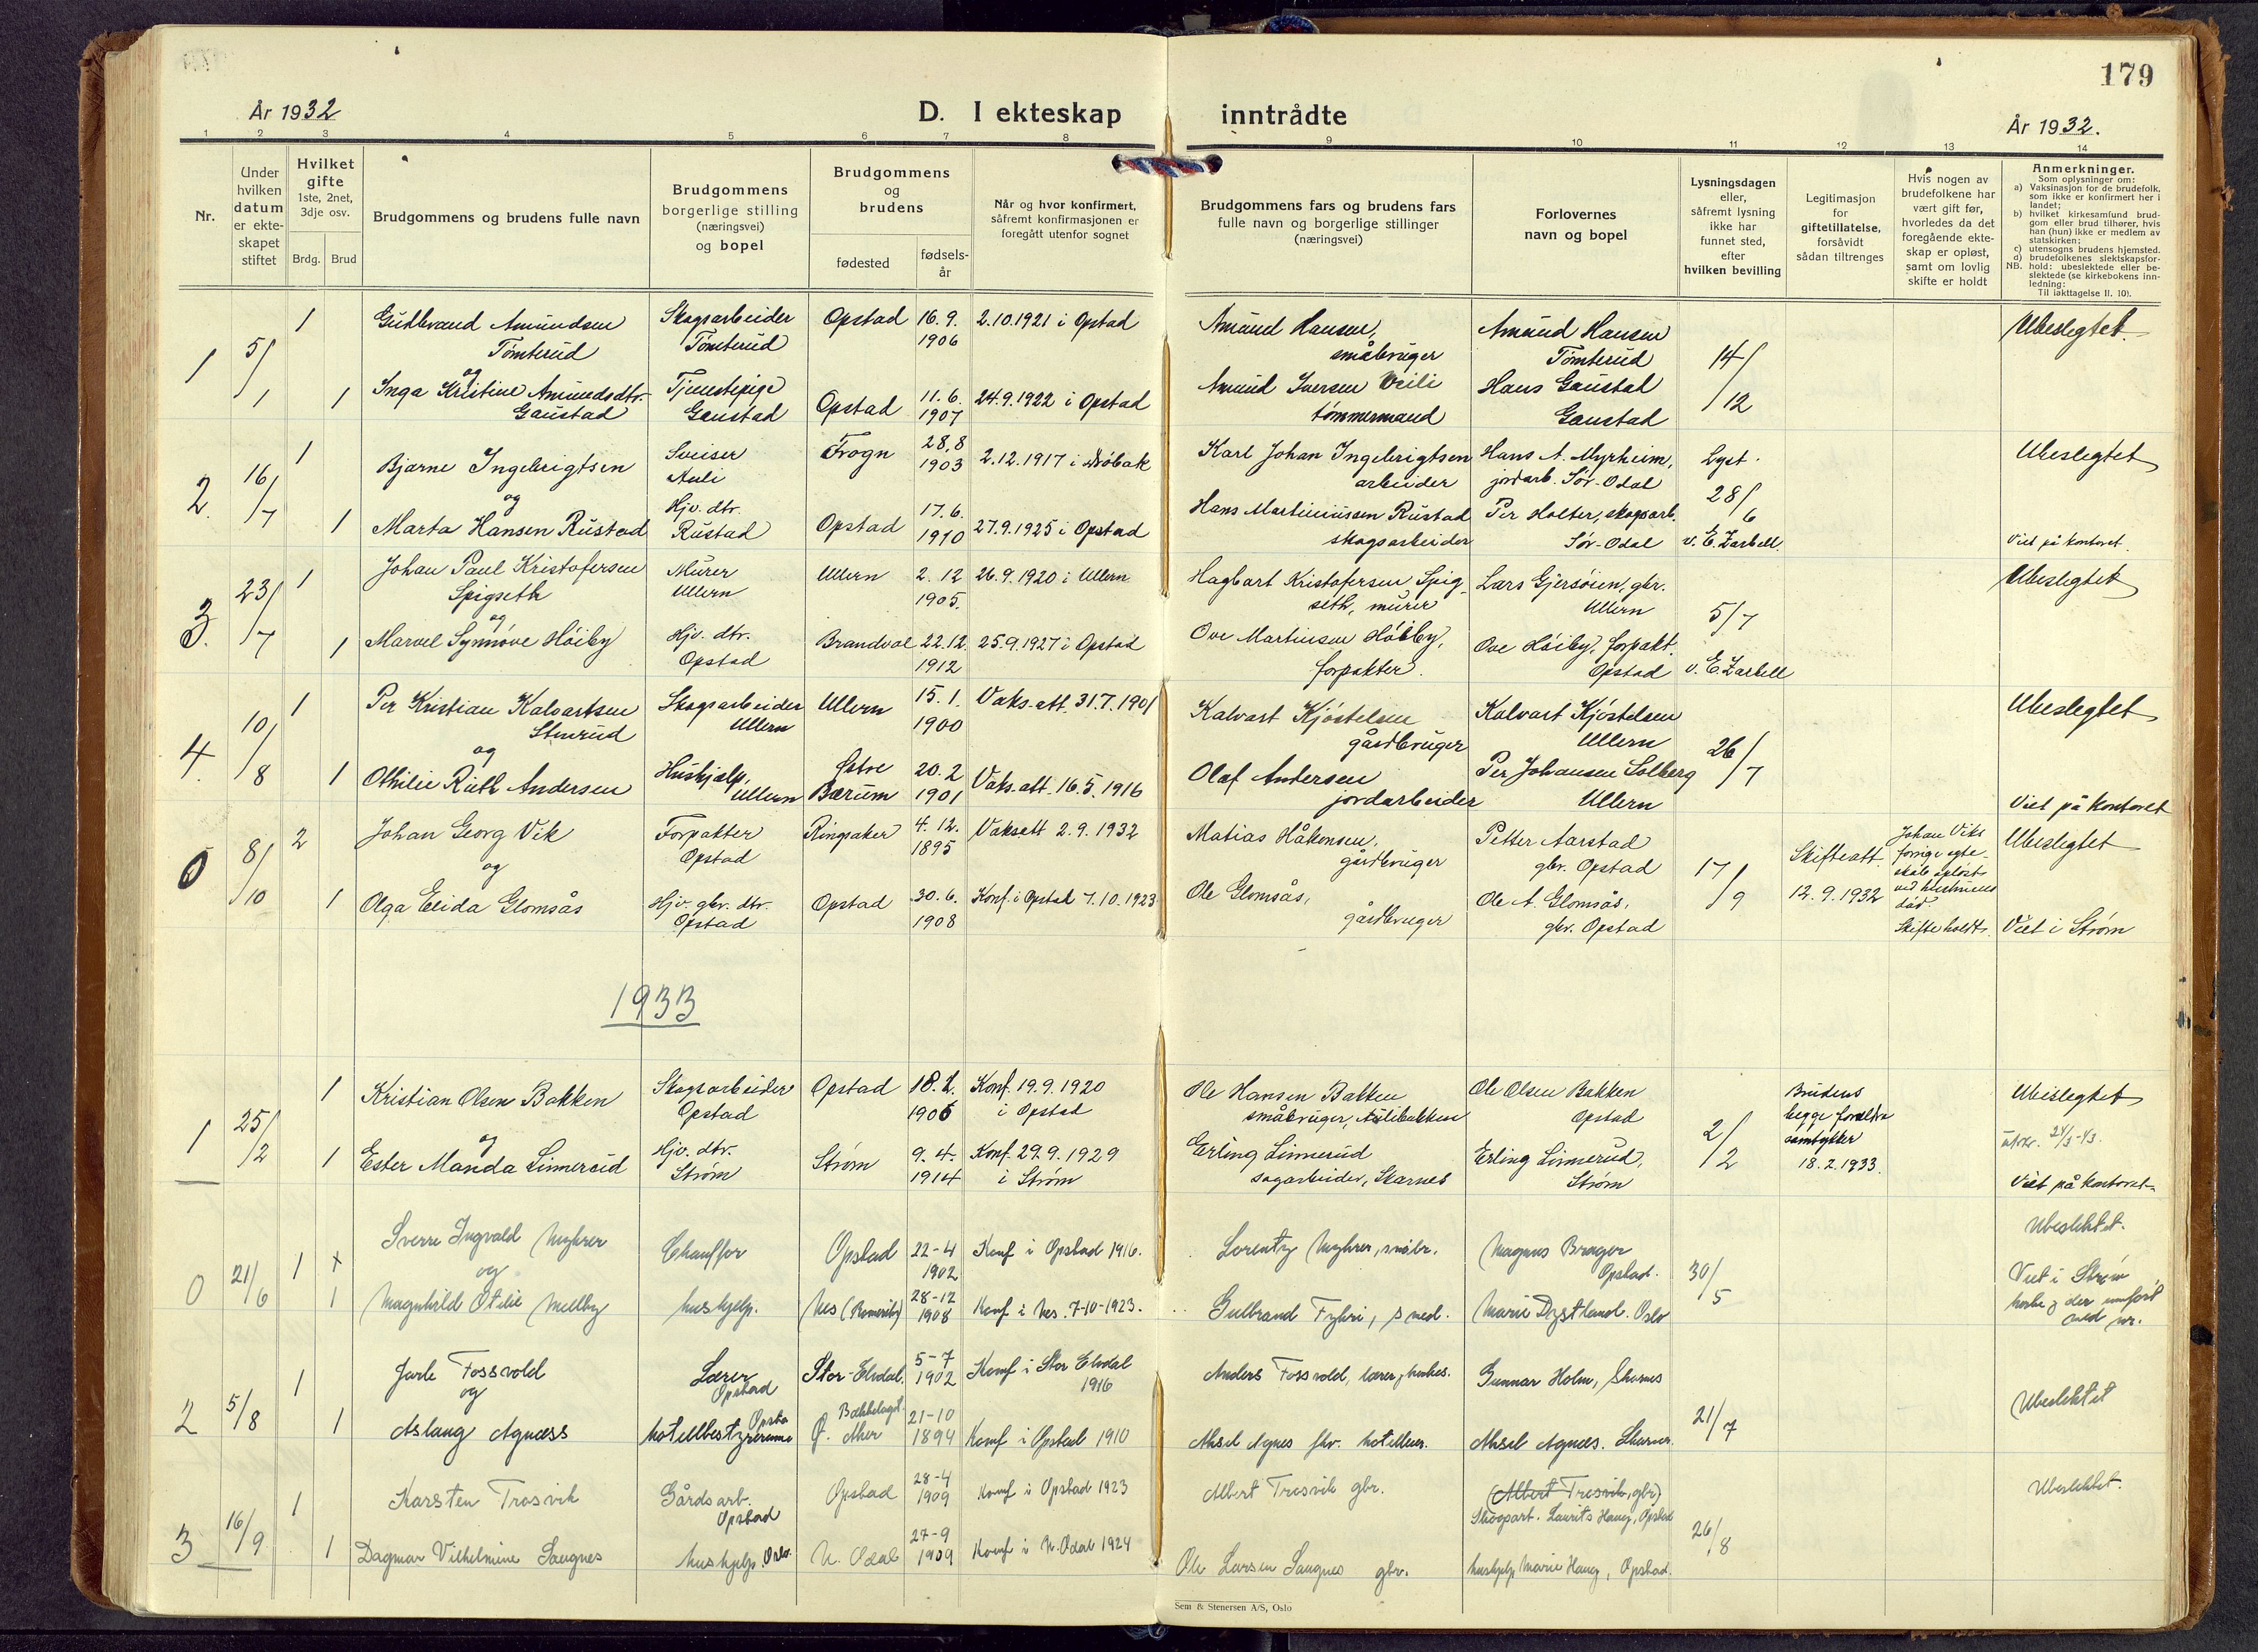 179
År 1932
D. I ekteskap inntrådte
År 1932.
1 2 3 4 5 6 7 8 9 10 11 12 13 14
Nr.
Under
hvilken
datum
er ekte-
skapet
stiftet
Hvilket
gifte
1ste, 2net,
3dje osv.
Brdg. Brud
Brudgommens og brudens fulle navn
Brudgommens
borgerlige stilling
(næringsvei)
og bopel
Brudgommens
og
brudens
fødested
fødsels-
år
Når og hvor konfirmert,
såfremt konfirmasjonen er
foregått utenfor sognet
Brudgommens fars og brudens fars
fulle navn og borgerlige stillinger
(næringsvei)
Forlovernes
navn og bopel
Lysningsdagen
eller,
såfremt lysning
ikke har
funnet sted,
efter
hvilken bevilling
Legitimasjon
for
giftetillatelse,
forsåvidt
sådan tiltrenges
Hvis nogen av
brudefolkene har
vært gift før,
hvorledes da det
foregående ekte-
skap er opløst,
samt om lovlig
skifte er holdt
Anmerkninger.
Som oplysninger om:
a) Vaksinasjon for de brudefolk,
som ikke er konfirmert her i
landet;
b) hvilket kirkesamfund brud-
gom eller brud tilhører, hvis
han (hun) ikke er medlem av
statskirken;
c) utensogns brudens hjemsted.
d) brudefolkenes slektskapsfor-
NB. hold: ubeslektede eller be-
slektede (se kirkebokens inn-
ledning:
Til iakttagelse II. 10).
1 5/1 1 Gudbrand Amundsen
Tømterud
og
1 Inga Kristine Amundsdtr.
Gaustad
Skogsarbeider
Tømterud
Tjenestepige
Gaustad
Opstad 16.9. 1906 2.10.1921 i Opstad
Opstad 11.6. 1907 24.9.1922 i Opstad
Amund Hansen,
småbruger
Amund Iversen
tømmermand
Amund Hansen
Tømterud
Hans Gaustad
Gaustad
14/12
Ubeslegtet.
2 16/7 1 Bjarne Ingebrigtsen
og
1 Marta Hansen Rustad
Sveiser
Auli
Hjv. dtr.
Rustad
Frogn 28.8 1903 2.12.1917 i Drøbak
Opstad 17.6. 1910 27.9.1925 i Opstad
Karl Johan Ingebrigtsen
arbeider
Hans Martiniussen Rustad
skogsarbeider
Hans A. Myrheim,
jordarb. Sør-Odal
Per Holter, skogsarb.
Sør-Odal
Lyst
28/6
v. E. Zarbell.
Ubeslegtet
Viet på kontoret.
3. 23/7 1 Johan Paul Kristofersen
Spigseth
og
1 Marvel Synnøve Høiby
Murer
Ullern
Hjv. dtr.
Opstad
Ullern 2.12 1905. 26.9.1920 i Ullern
Brandval 22.12. 1912 25.9.1927 i Opstad
Hagbart Kristofersen Spig-
seth, murer
Ove Martinsen Høiby,
forpakter.
Lars Gjersøien, gbr.
Ullern
Ove Høiby, forpakt.
Opstad
5/7
v. E. Zarbell
Ubeslegtet
4. 10/8 1 Per Kristian Kalvartsen
Stenrud
og
1 Othilie Ruth Andersen
Skogsarbeider
Ullern
Hushjelp,
Ullern
Ullern 15.1. 1900 Vaks.att. 31.7.1901
Østre
Bærum 20.2 1901 Vaks.att. 16.5.1916
Kalvart Kjøstelsen
gårdbruger
Olaf Andersen
jordarbeider
Kalvart Kjøstelsen
Ullern
Per Johansen Solberg
Ullern
26/7
Ubeslegtet
Viet på kontoret
0 8/10 2 Johan Georg Vik
og
1 Olga Elida Glomsås
Forpakter
Opstad
Hjv. gbr. dtr.
Opstad
Ringsaker 4.12. 1895 Vaksatt 2.9.1932
Opstad 30.6. 1908 Konf. i Opstad 7.10.1923
Matias Håkensen,
gårdbruger
Ole Glomsås,
gårdbruger
Petter Aarstad
gbr. Opstad
Ole A. Glomsås,
gbr. Opstad
17/9
Skifteatt.
12.9.1932
Johan Viks
forrige egte-
skab opløst
ved hustruens
død.
Skifte holdt.
Ubeslegtet
Viet i Strøm
1933
1 25/2 1 Kristian Olsen Bakken
og
1 Ester Manda Linnerud
Skogsarbeider
Opstad
Hjv. dtr.
Strøm
Opstad 18.2. 1906 Konf. 19.9.1920
i Opstad
Strøm 9.4. 1914 Konf. 29.9.1929
i Strøm
Ole Hansen Bakken
småbruger, Aulibakken
Erling Linnerud
sagarbeider, Skarnes
Ole Olsen Bakken
Opstad
Erling Linnerud,
Strøm
2/2
Brudens
begge foreldre
samtykker
18.2.1933.
Ubeslegtet
utskr. 24/3-43.
Viet på kontoret
0 21/6 1 Sverre Ingvald Myhrer
og
1 Magnhild Otelie Melby
Chauffør
hushjelp.
Opstad 22-4 1902 Konf i Opstad 1916.
Nes (Romerike) 28-12 1908 Konf i Nes. 7-10-1923.
Lorentz Myhrer, småbr.
Gulbrand Fyhri, smed.
Magnus Brager
Opstad.
Marie Dystland. Oslo
30/5
Ubeslektet.
Viet i Strøm
der innført
med nr.
2 5/8 1 Jarle Fossvold
og
1 Aslaug Agnæss
Lærer
Opstad
Opsta
hotellbestyrerinne
Stor-Elvdal. 5-7 1902 Konf i Stor Elvdal
1916
Bækkelaget
Ø. Aker 21-10 1894 Konf i Opstad 1910
Anders Fossvold, lærer,
Aksel Agnes fhv. hotelleier.
Gunnar Holm, Skarnes
Aksel Agnæs. Skarnes.
21/7
Ubeslektet
3 16/9 1 Karsten Trosvik
1 Dagmar Vilhelmine Saugnes
Gårdsarb.
Opstad
hushjelp. Oslo.
Opstad 28-4 1909 Konf i Opstad 1923
N. Odal 27-9 1909 Konf i N. Odal 1924
Albert Trosvik gbr.
Ole Larsen Saugnes gbr.
(Albert Trosvik, gbr)
Skogsart. Laurits Haug, Opstad
hushjelp Marie Haug, Opstad.
26/8
Ubeslektet.
Sem & Stenersen A/S, Oslo